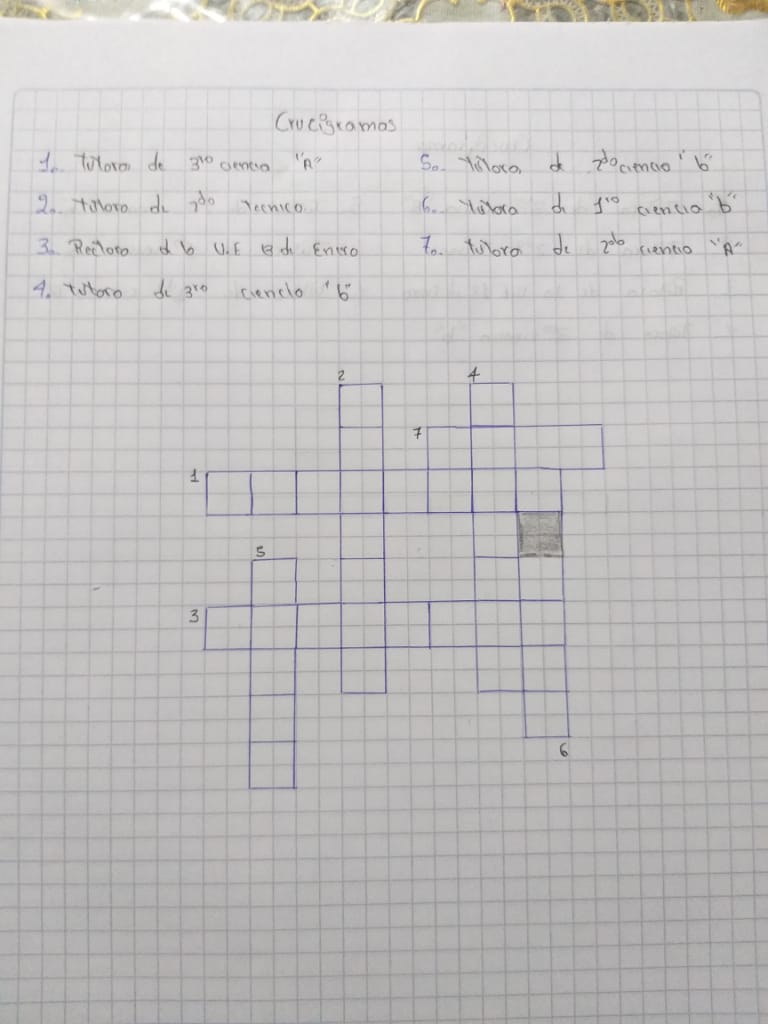 Crucigramas
1. Tutora de 3ro ciencia "A"
2. Tutora de 2do Tecnico
3. Rectora d la U.E de Enero
4. Tutora de 3ro ciencia "b"
5. Tutora de 2do ciencia "b"
6. Tutora de 1ro ciencia "b"
7. tutora de 2do ciencia "A"
2 4
7
1
5
3
6